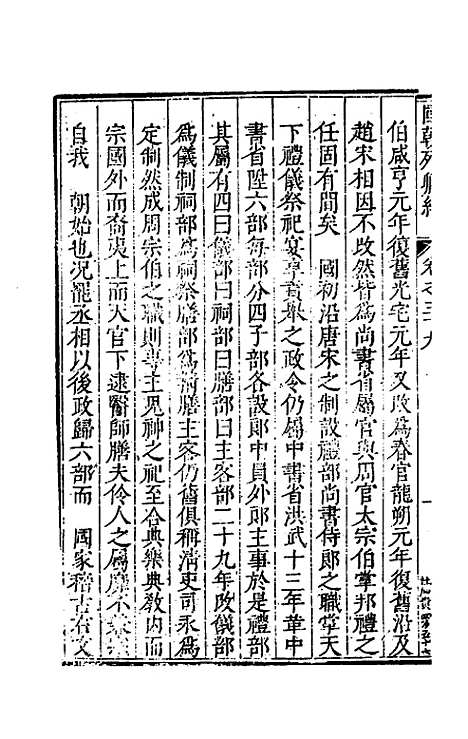 國朝列卿紀 卷之三十九 一
伯咸亨元年復舊光宅元年又改爲春官龍朔元年復舊沿及
趙宋相因不改然皆爲尚書省屬官與周官太宗伯掌邦禮之
任固有間矣 國初沿唐宋之制設禮部尚書侍郎之職掌天
下禮儀祭祀宴享貢舉之政令仍屬中書省洪武十三年革中
書省陞六部每部分四子部各設郎中員外郎主事於是禮部
其屬有四曰儀部曰祠部曰膳部曰主客部二十九年改儀部
爲儀制祠部爲祠祭膳部爲精膳主客仍舊俱稱清吏司永爲
定制然成周宗伯之職則專主鬼神之祀至合典樂典教内而
宗國外而裔夷上而天官下逮醫師膳夫伶人之屬靡不
自我 朝始也況罷丞相以後政歸六部而 國家稽古右文